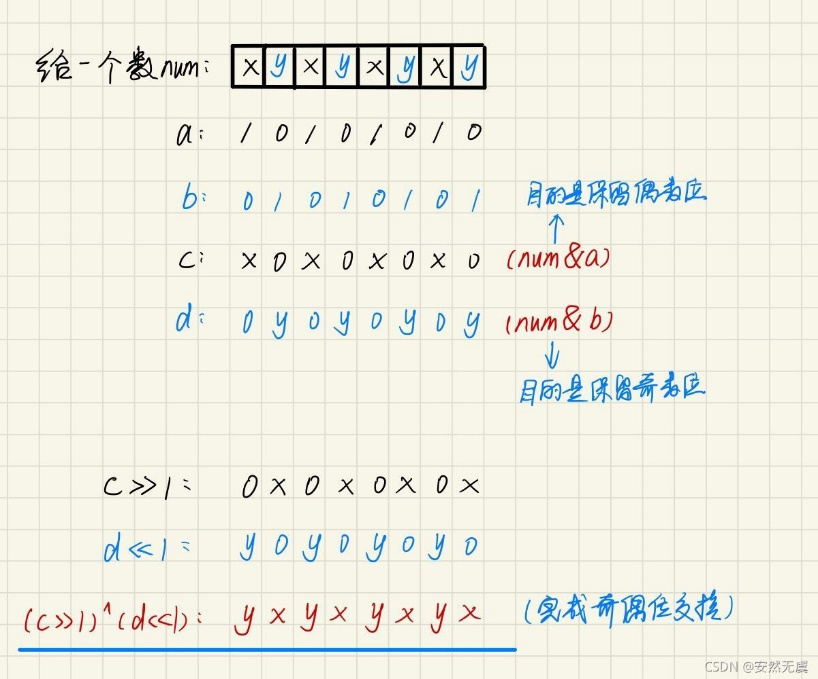 给一个数num: x y x y x y x y
a: 1 0 1 0 1 0 1 0
b: 0 1 0 1 0 1 0 1 目的是保留偶数位
c: x 0 x 0 x 0 x 0 (num&a)
d: 0 y 0 y 0 y 0 y (num&b)
目的是保留奇数位
c>>1: 0 x 0 x 0 x 0 x
d<<1: y 0 y 0 y 0 y 0
(c>>1)^(d<<1): y x y x y x y x (完成奇偶位交换)
CSDN @安然无虞